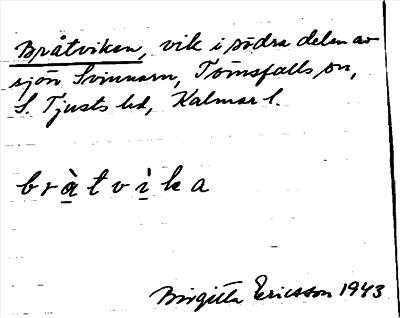 Bråtviken, vik i södra delen av
sjön Svinnarn, Törnsfalls sn,
S. Tjusts hd, Kalmar l.
bràtvìka
Birgitta Ericsson 1943